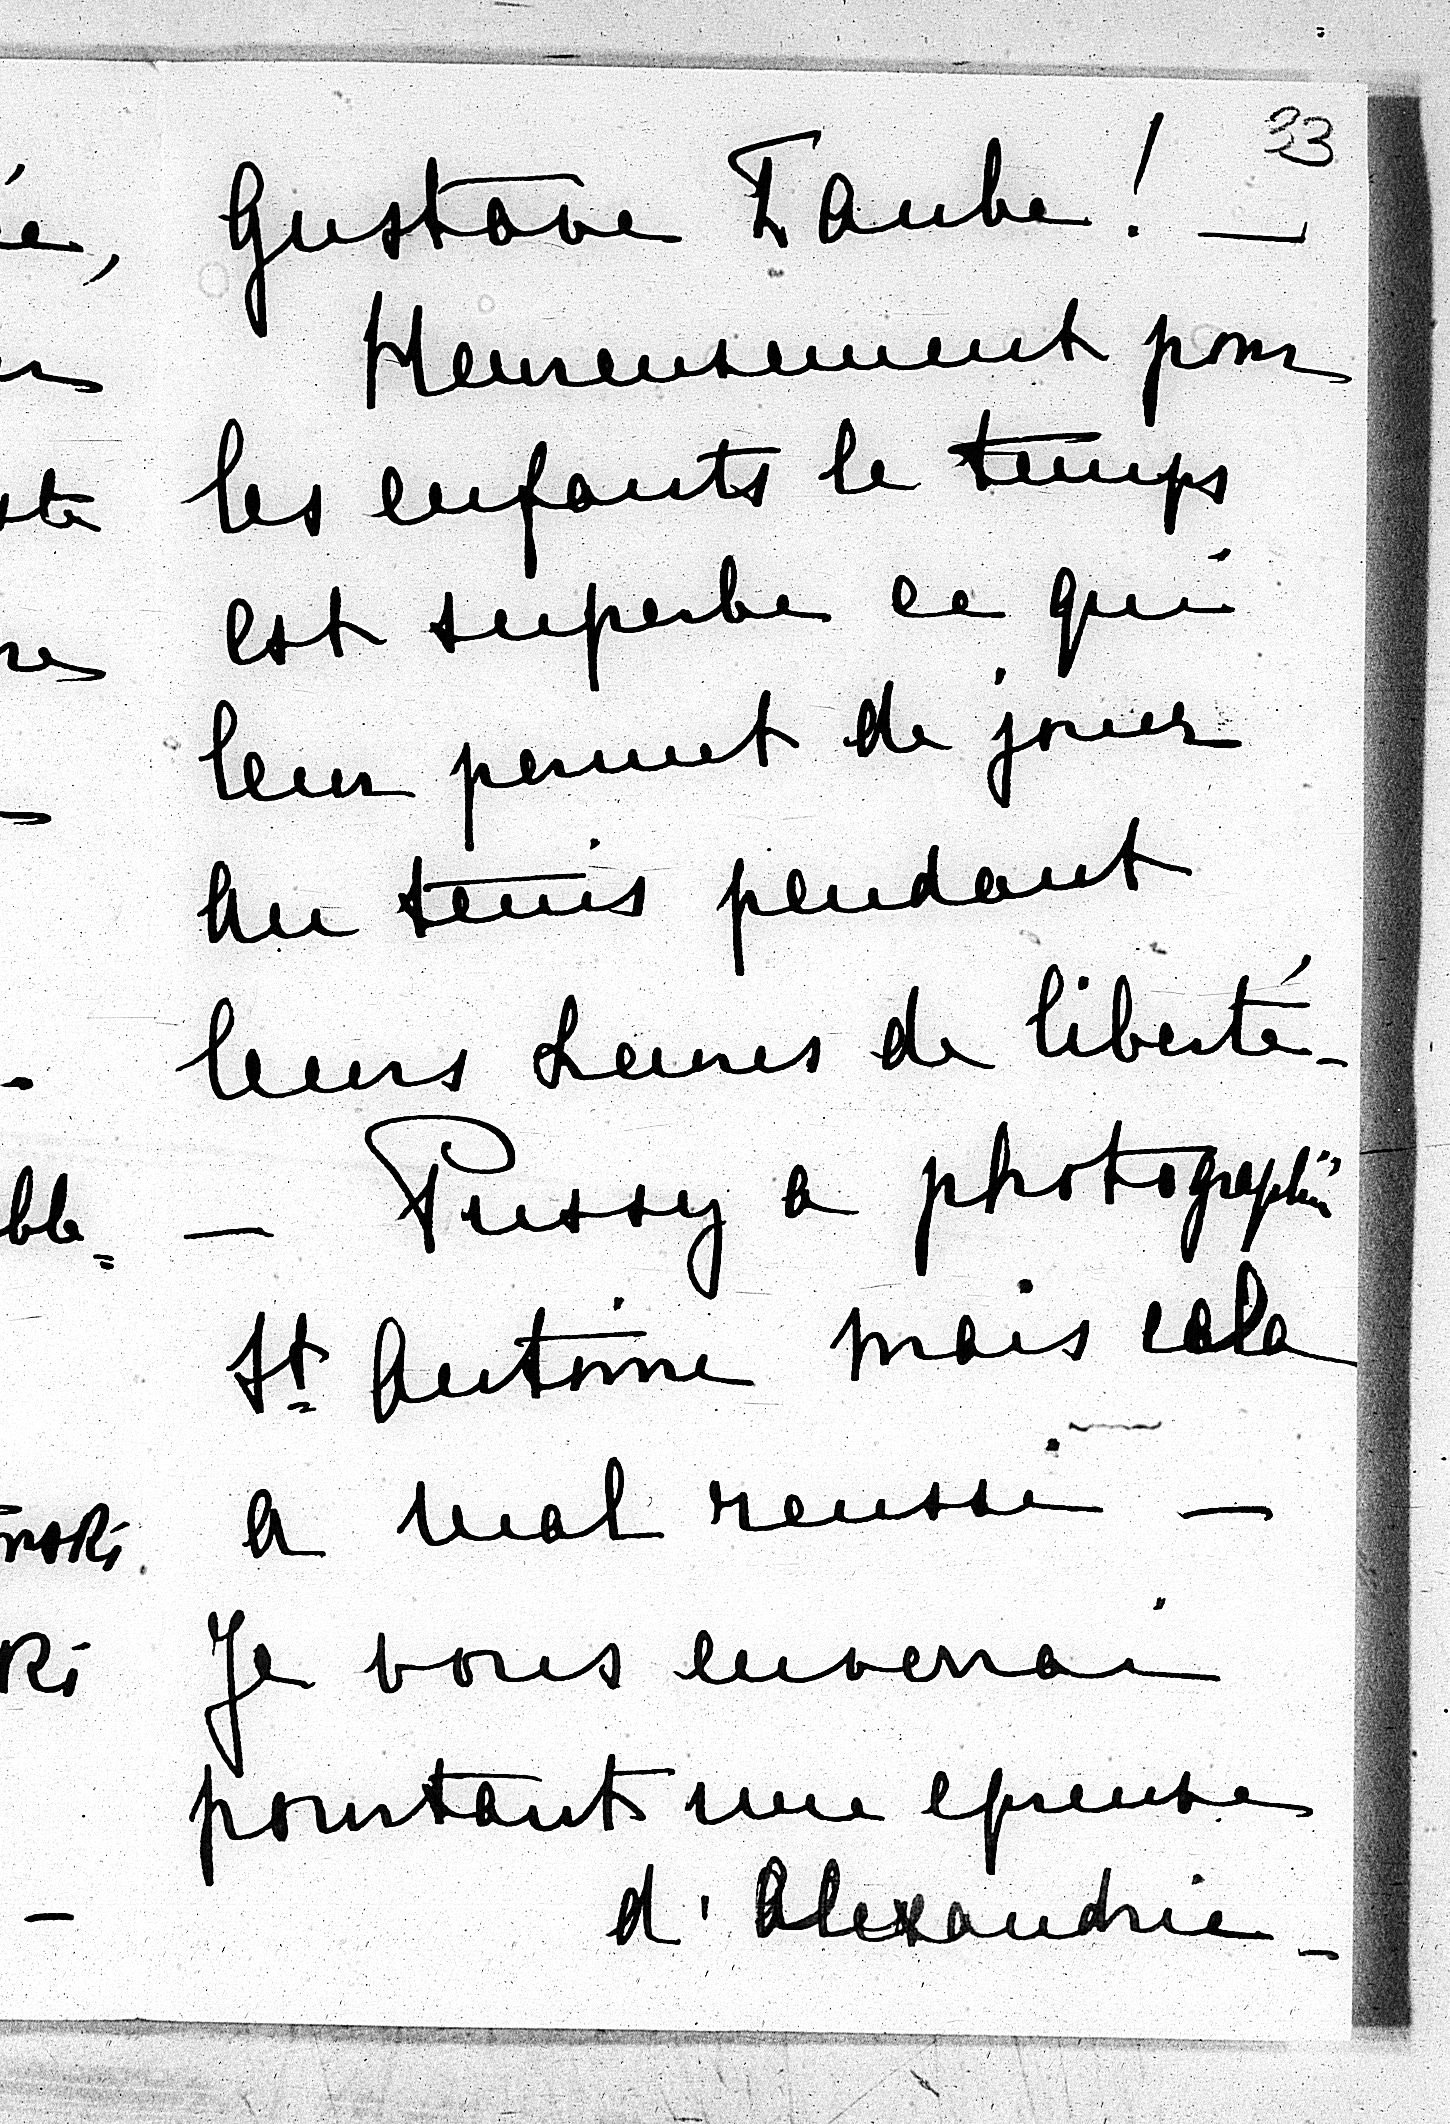 33
Gustave Taube! —
Heureusement pour
les enfants le temps
est superbe ce qui
leur permet de jouer
au tenis pendant
leurs heures de liberté -
— Pussy a photographié
St Antoine mais cela
a mal reussi —
Je vous enverrai
pourtant une epreuve
d'Alexandrie -